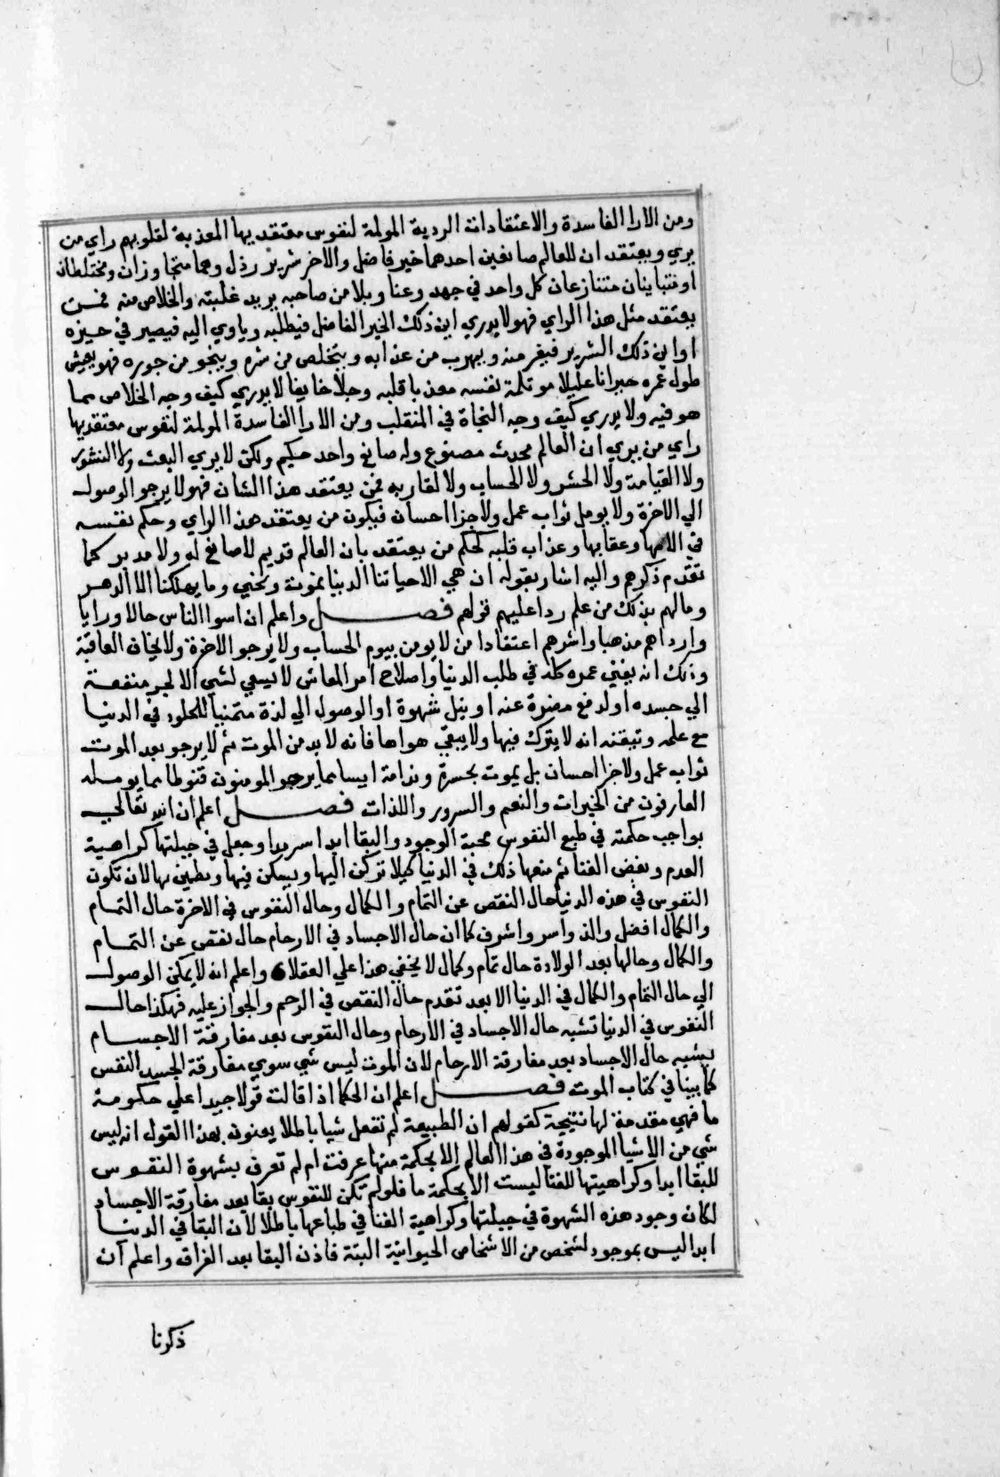 ومن الارا الفاسدة والاعتقادات الردية المولمة لنفوس معتقديها المعذبة لقلوبهم راي من
يري ويعتقد ان للعالم صانعين احدهما خير فاضل والاخر شرير رذل وهما متجاوران ومختلطان
او متباينان متنازعان كل واحد في جهد وعنا وبلا من صاحبه يريد غلبته والخلاص منه فمن
يعتقد مثل هذا الراي فهو لا يدري اين ذلك الخير الفاضل فيطلبه وياوي اليه فيصير في حيزه
او اين ذلك الشرير فيفر منه ويهرب من عذابه ويتخلص من شره وينجو من جوره فهو يعيش
طول عمره حيرانا عليلا موتلمة نفسه معذبا قلبه وجلا خايفا لا يدري كيف وجه الخلاص مما
هو فيه ولا يدري كيف وجه النجاة في المنقلب ومن الارا الفاسدة المولمة لنفوس معتقديها
راي من يري ان العالم محدث مصنوع وله صانع واحد حكيم ولكن لا يري البعث ولا النشور
ولا القيامة ولا الحشر ولا الحساب ولا لقا ربه فمن يعتقد هذا الشان فهو لا يرجو الوصول
الي الاخرة ولا يومل ثواب عمل ولا جزا احسان فيكون من يعتقد هذا الراي وحكم نفسه
في الامها وعقابها وعذاب قلبه كحكم من يعتقد بان العالم قديم لا صانع له ولا مدبر كما
تقدم ذكرهم واليه اشار بقوله ان هي الا حياتنا الدنيا نموت ونحيي وما يهلكنا الا الدهر
وما لهم بذلك من علم ردا عليهم قولهم فصل واعلم ان اسوا الناس حالا ورايا
وارداهم مذهبا واشرهم اعتقادا من لا يومن بيوم الحساب ولا يرجو الاخرة ولا يخاف العاقبة
وذلك انه يفني عمره كله في طلب الدنيا واصلاح امر المعاش لا يسعي لشي الا لجر منفعة
الي جسده او لدفع مضرة عنه او نيل شهوة او الوصول الي لذة متمنيا للخلود في الدنيا
مع علمه وتيقنه انه لا يترك فيها ولا يبقي هواها فانه لا بد من الموت ثم لا يرجو بعد الموت
ثواب عمل ولا جزا احسان بل يموت بحسرة وندامة ايسا مما يرجو المومنون قنوطا مما يومله
العارفون من الخيرات والنعم والسرور واللذات فصل اعلم ان الله تعالي
بواجب حكمته في طبع النفوس محبة الوجود والبقا ابدا سرمدا وجعل في جبلتها كراهية
العدم وبغض الفنا ثم منعها ذلك في الدنيا كيلا تركن اليها ويسكن فيها ويطمين بها لان تكون
النفوس في هذه الدنيا حال النقص عن التمام والكمال وحال النفوس في الاخرة حال التمام
والكمال افضل والذ واسر واشرف كما ان حال الاجساد في الارحام حال نقص عن التمام
والكمال وحالها بعد الولادة حال تمام وكمال لا يخفي هذا علي العقلا واعلم انه لا يمكن الوصول
الي حال التمام والكمال في الدنيا الا بعد تقدم حال النقص في الرحم والجواز عليه فهكذا حال
النفوس في الدنيا تشبه حال الاجساد في الارحام وحال النفوس بعد مفارقة الاجسام
يشبه حال الاجساد بعد مفارقة الارحام لان الموت ليس شي سوي مفارقة الجسد النفس
كما بينا في كتاب الموت فصل اعلم ان الحكما اذا قالت قولا جيدا علي حكومة
ما فهي مقدمة لها نتيجة كقولهم ان الطبيعة لم تفعل شيا باطلا يعنون بهذا القول انه ليس
شي من الاشيا الموجودة في هذا العالم الا بحكمة منها عرفت ام لم تعرف بشهوة النفوس
للبقا ابدا وكراهيتها للفنا ليست الا بحكمة ما فلو لم تكن للنفوس بقا بعد مفارقة الاجساد
لكان وجود هذه الشهوة في جبلتها وكراهية الفنا في طباعها باطلا لان البقا في الدنيا
ابدا ليس بموجود لشخص من الاشخاص الحيوانية البتة فاذن البقا بعد الفراق واعلم ان
ذكرنا